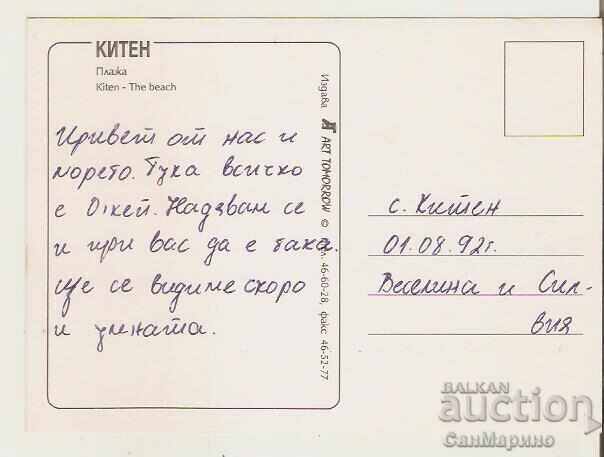 КИТЕН
Плажа
Kiten - The beach
Привет от нас и
морето. Тука всичко
е О'кей. Надявам се
и при вас да е така.
Ще се видиме скоро
и
Издава ART TOMORROW © 46-60-28, факс 46-52-77
с. Китен
01.08.92г.
Веселина и Сил-
вия
BALKAN
auction
СанМарино